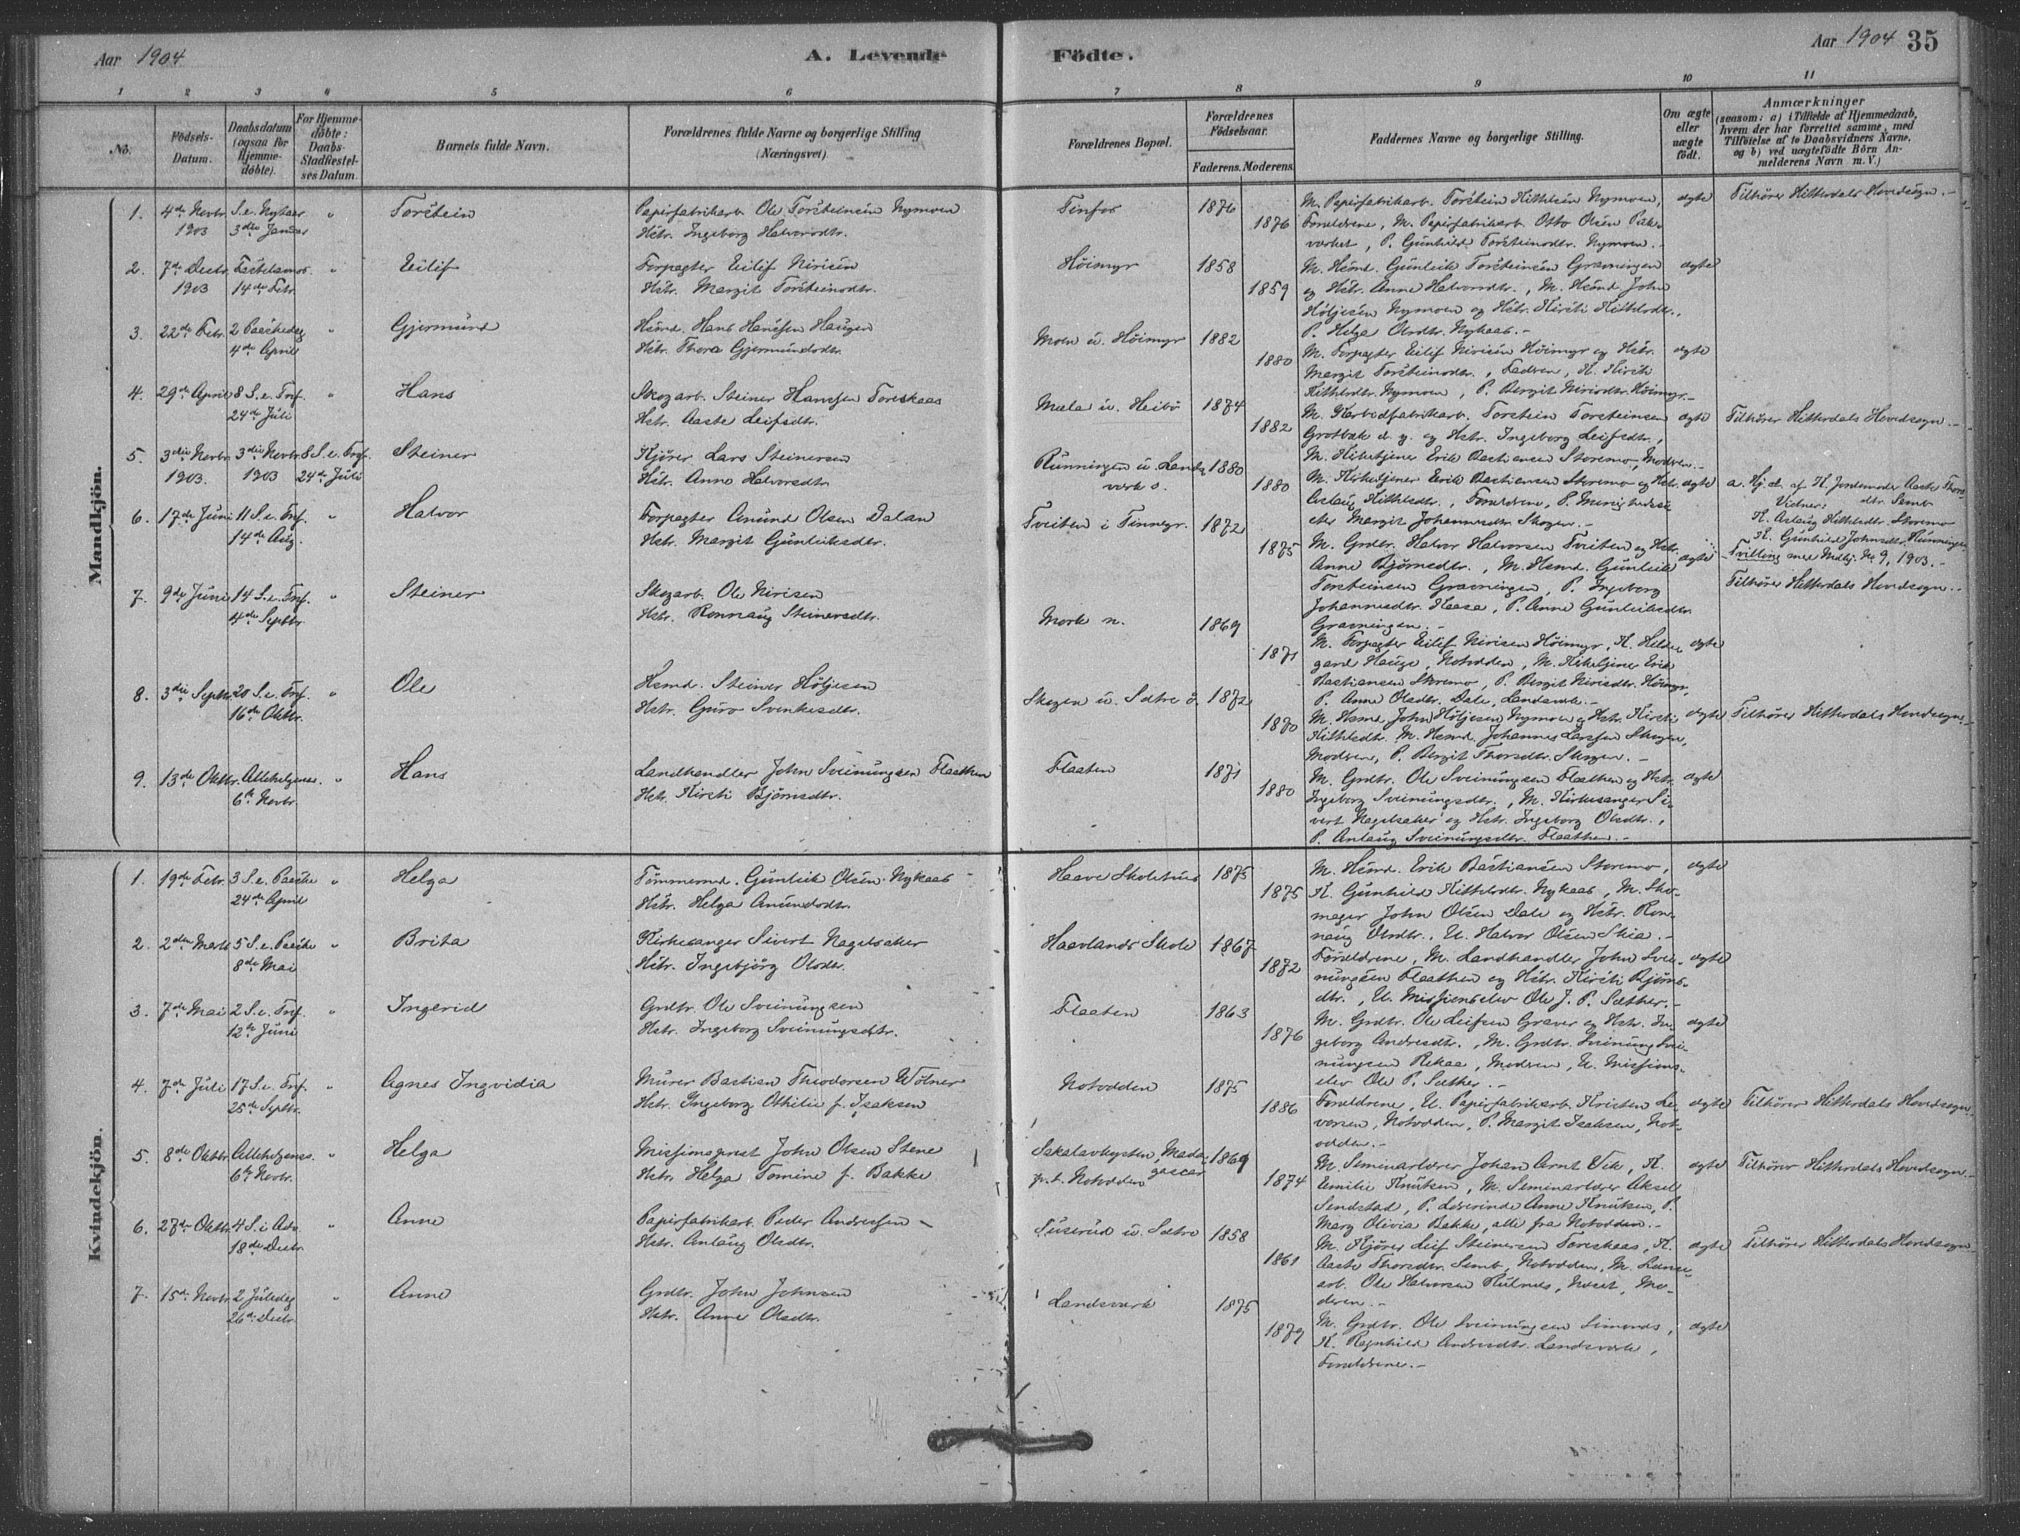 Aar 1904
A. Levende
Födte.
Aar 1904
35
1 2 3 4 5 6 7 8 9 10 11
No.
Födsels-Datum.
Daabsdatum (ogsaa for Hjemmedöbte).
For Hjemmedöbte: Daabs-Stadfæstelses Datum.
Barnets fulde Navn.
Forældrenes fulde Navne og borgerlige Stilling (Næringsvei)
Forældrenes Bopæl.
Forældrenes Födselsaar.
Faderens. Moderens.
Faddernes Navne og borgerlige Stilling.
Om ægte eller uægte födt.
Anmærkninger (saasom: a) i Tilfælde af Hjemmedaab, hvem der har forrettet samme, med Tilföielse af to Daabsvidners Navne, og b) ved uægtefödte Börn Anmelderens Navn m. V.)
Mandkjön.
1. 4de Novbr. 1903 S. e. Nytaar 3die Januar " Torstein
Papirfabrikarb. Ole Torsteinsen Nymoen
Hstr. Ingeborg Halvorsdtr.
Tinfos 1876 1876
M. Papirfabrikarb. Torstein Kittilsen Nymoen,
Forældrene, M. Papirfabrikarb. Otto Olsen
P. Gunhild Torsteinsdtr. Nymoen. -
ægte
Tilhører Hitterdals Hovedsogn. -
2. 7de Decbr. 1903 Fastelavns. 14de Febr. " Eilif
Forpagter Eilif Nirisen
Hstr. Margit Torsteinsdtr.
Høimyr 1858 1859
M. Husmd. Gunleik Torsteinsen Gravningen
og Hstr. Anne Halvorsdtr., M. Husmd John
Høljesen Nymoen og Hstr. Kirsti Kittilsdtr.,
P. Helga Olsdtr. Nykaas. -
ægte
3. 22de Febr. 2 Paaskedag 4de April " Gjermund
Husmd. Hans Hansen Haugen
Hstr. Thora Gjermundsdtr.
Moen u. Høimyr 1882 1880
M. Forpagter Eilif Nirisen Høimyr og Hstr.
Margit Torsteinsdtr., Faderen, K. Kirsti
Kittilsdtr. Nymoen, P. Bergit Nirisdtr. Høimyr. -
ægte
4. 29de April 8 S. e. Tref. 24de Juli " Hans
Skogarb. Steiner Hansen Toreskaas
Hstr. Aaste Leifsdtr.
Mæla u. Heibö 1874 1882
M. Karbidfabrikarb. Torstein Torsteinsen
Grotbæk d. y. og Hstr. Ingeborg Leifsdtr.,
M. Kirketjener Erik Bastiansen Storemo, Modren. -
ægte
Tilhører Hitterdals Hovedsogn. -
5. 3die Novbr. 1903. 3die Novbr. 1903 8 S. e. Tref. 24de Juli Steiner
Kjører Lars Steinersen
Hstr. Anne Halvorsdtr.
Rønningen u. Landsværk ö. 1880 1880
M. Kirketjener Erik Bastiansen Storemo og Hstr.
Aslaug Kittilsdtr., Forældrene,
Margit Johannesdtr. Skogen. -
ægte
a. Hj. d. af K. Jordemoder Aaste Thorsdtr. Semb
Vidner:
K. Aslaug Kittilsdtr. Storemo
K. Gunhild Johnsdtr. Rønningen
Tvilling med Mdkj. No 9, 1903. -
6. 17de Juni 11 S. e. Tref. 14de Aug. " Halvor
Forpagter Amund Olsen Dalan
Hstr. Margit Gunleiksdtr.
Tveiten i Tinnegr. 1872 1875
M. Grdbr. Halvor Halvorsen Tveiten og Hstr.
Anne Bjørnsdtr., M. Husmd. Gunleik
Torsteinsen Gravningen, P. Ingeborg
Johannesdtr. Haasa, P. Anne Gunleiksdtr.
Gravningen. -
ægte
7. 9de Juni 14 S. e. Tref. 4de Septbr. " Steiner
Skogarb. Ole Nirisen
Hstr. Rønnaug Steinersdtr.
Mork n. 1869 1871
M. Forpagter Eilif Nirisen Høimyr, K. Hildegard Hauge, Notodden, M. Kirketjener Erik
Bastiansen Storemo, P. Bergit Nirisdtr. Høimyr,
P. Anne Olsdtr. Dale, Landsværk. -
ægte
Tilhører Hitterdals Hovedsogn. -
8. 3die Septbr. 20 S. e. Tref. 16de Oktbr. " Ole
Husmd. Steiner Høljesen
Hstr. Guro Svenkesdtr.
Skogen u. Sætre ö. 1872 1870
M. Husmd. John Høljesen Nymoen og Hstr. Kirsti
Kittilsdtr. M. Husmd. Johannes Larssen Skogen,
Modren, P. Bergit Thorsdtr. Skogen. -
ægte
Tilhører Hitterdals Hovedsogn. -
9. 13de Oktbr. Allehelgens. 6te Novbr. " Hans
Landhandler John Sveinungsen Flaathen
Hstr. Kirsti Bjørnsdtr.
Flaaten 1871 1880
M. Grdbr. Ole Sveinungsen Flaathen og Hstr.
Ingeborg Sveinungsdtr., M. Kirkesanger Sivert Nagelsaker og Hstr. Ingeborg Olsdtr.,
P. Anlaug Sveinungsdtr. Flaathen. -
ægte
Kvindekjön.
1. 19de Febr. 3 S. e. Paaske 24de April " Helga
Tømmermd. Gunleik Olsen Nykaas
Hstr. Helga Amundsdtr.
Haave Skolehus 1875 1875
M. Husmd. Erik Bastiansen Storemo,
K. Gunhild Kittilsdtr. Nykaas, M. Skomager John Olsen Dale og Hstr. Rønnaug Olsdtr., U. Halvor Olsen Skia. -
ægte
2. 2den Marts 5 S. e. Paaske 8de Mai " Brita
Kirkesanger Sivert Nagelsaker
Hstr. Ingebjörg Olsdtr.
Haavlands Skole 1867 1872
Forældrene, M. Landhandler John Sveinungsen Flaathen og Hstr. Kirsti Bjørnsdtr., U. Missionselev Ole J. P. Sæther. -
ægte
3. 7de Mai 2 S. e. Tref. 12te Juni " Ingerid
Grdbr. Ole Sveinungsen
Hstr. Ingeborg Sveinungsdtr.
Flaaten 1863 1876
M. Grdbr. Ole Leifsen Graver og Hstr. Ingeborg Andresdtr., M. Grdbr. Sveinung Sveinungsen Rekaa, Modren, U. Missionselev Ole P. Sæther. -
ægte
4. 7de Juli 17 S. e. Tref. 25de Septbr. " Agnes Ingvidia
Murer Bastian Theodorsen Wolner
Hstr. Ingeborg Othilie f. Isaksen
Notodden 1875 1886
Forældrene, U. Papirfabrikarb. Kristen Iversen, Notodden, P. Margit Isaksen, Notodden. -
ægte
Tilhører Hitterdals Hovedsogn. -
5. 8de Oktbr. Allehelgens. 6te Novbr. " Helga
Missionsprest John Olsen Stene
Hstr. Helga Tomine f. Bakke
Sakalavkysten, Madagascar
p. t. Notodden 1869 1874
M. Seminarlærer Johan Arnt Vik, K.
Emilie Knutsen, M. Seminarlærer Aksel
Sendstad, P. Lærerinde Anne Knutsen, P.
Marg Olivia Bakke, alle fra Notodden. -
ægte
Tilhører Hitterdals Hovedsogn. -
6. 27de Oktbr. 4 S. i Adv. 18de Decbr. " Anne
Papirfabrikarb. Peder Andersen -
Hstr. Anlaug Olsdtr.
Tuserud u. Sætre 1858 1861
M. Kjører Leif Steinersen Toreskaas, K.
Aaste Thorsdtr. Semb, Notodden, M.
arb. Ole Halvorsen Moderen. -
ægte
Tilhører Hitterdals Hovedsogn.
7. 15de Novbr. 2 Juledag 26de Decbr. " Anne
Grdbr. John Johnsen
Hstr. Anne Olsdtr.
Landsværk 1875 1879
M. Grdbr. Ole Sveinungsen
K. Ragnhild Andresdtr. Landsværk,
Forældrene. -
ægte